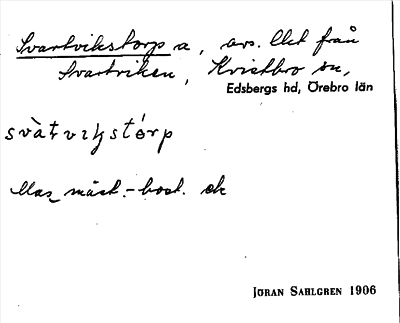 Svartvikstorp a, avs. Utt från
Svartviken, Kvistbro sn,
Edsbergs hd, Örebro län
svàtvikstórp
mäst.-bost. ek
JÖRAN SAHLGREN 1906